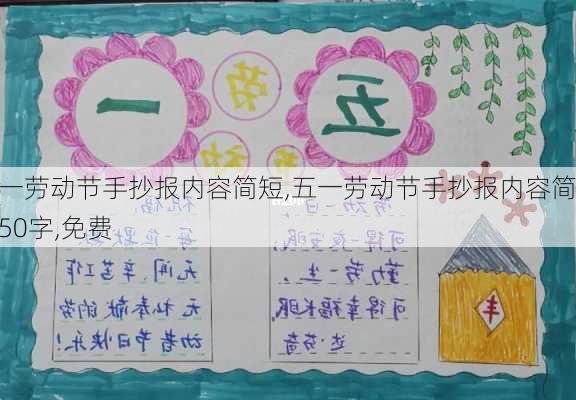 五一
劳动节
一劳动节手抄报内容简短,五一劳动节手抄报内容简
50字,免费
劳动一日,
可得一夜安眠,
勤劳一生,
可得幸福长眠.
达·芬奇
祝福:
每一位默默
无闻、辛苦工作
无私奉献的劳
动者节日快乐!
丰